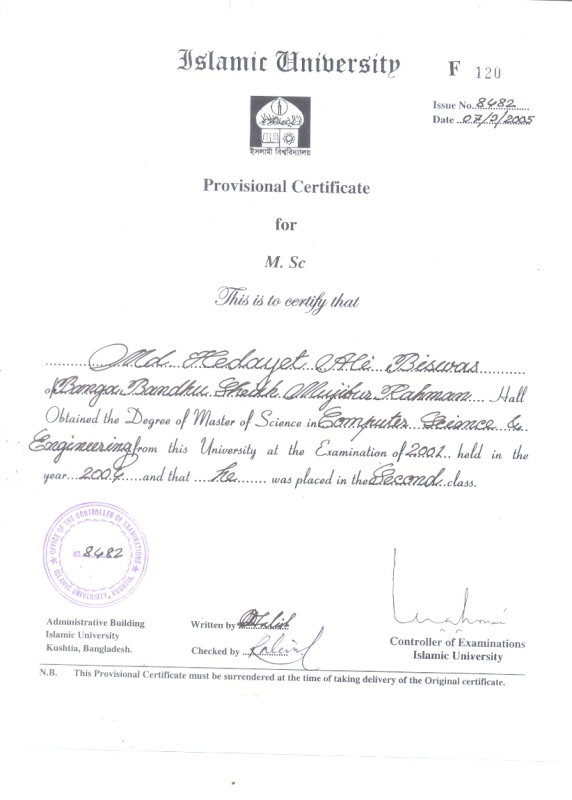 Islamic University
F 120
Issue No. 8482
Date ..07/2/2005
ইসলামী বিশ্ববিদ্যালয়
Provisional Certificate
for
M. Sc
This is to certify that
Md. Hedayet Ali Biswas
of Banga Bandhu Sheikh Mujibur Rahman Hall
Obtained the Degree of Master of Science in Computer Science &
Engineering from this University at the Examination of 2002 held in the
year 2004 and that he was placed in the Second class.
OFFICE OF THE CONTROLLER OF EXAMINATIONS
NO. 8482
ISLAMIC UNIVERSITY, KUSHTIA.
Administrative Building
Islamic University
Kushtia, Bangladesh.
Written by
Checked by
Controller of Examinations
Islamic University
N.B. This Provisional Certificate must be surrendered at the time of taking delivery of the Original certificate.